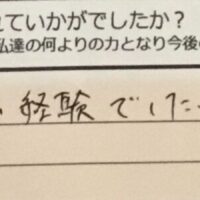 れていかがでしたか？
私達の何よりの力となり今後
経験でした